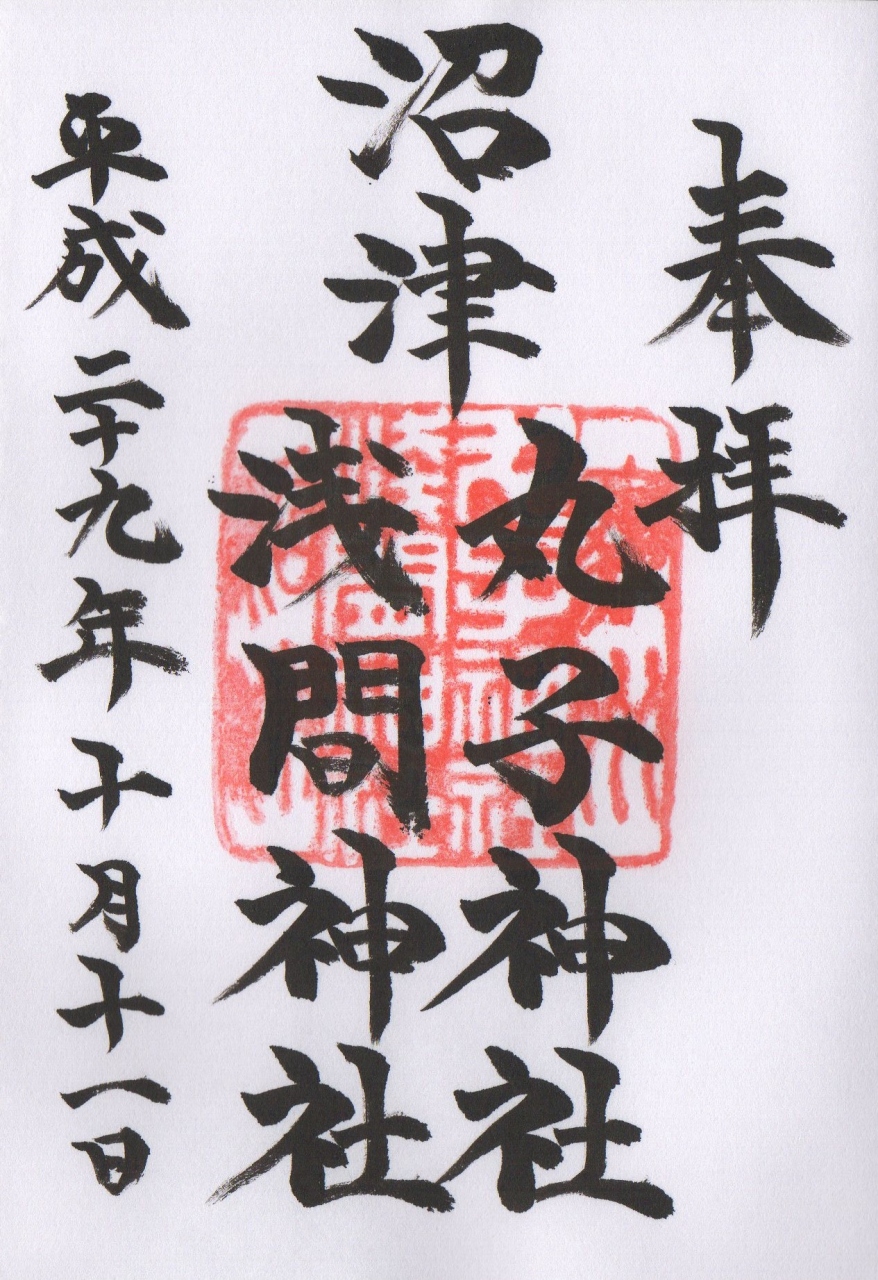 奉拝
沼津
丸子神社
浅間神社
平成二十九年十月十一日